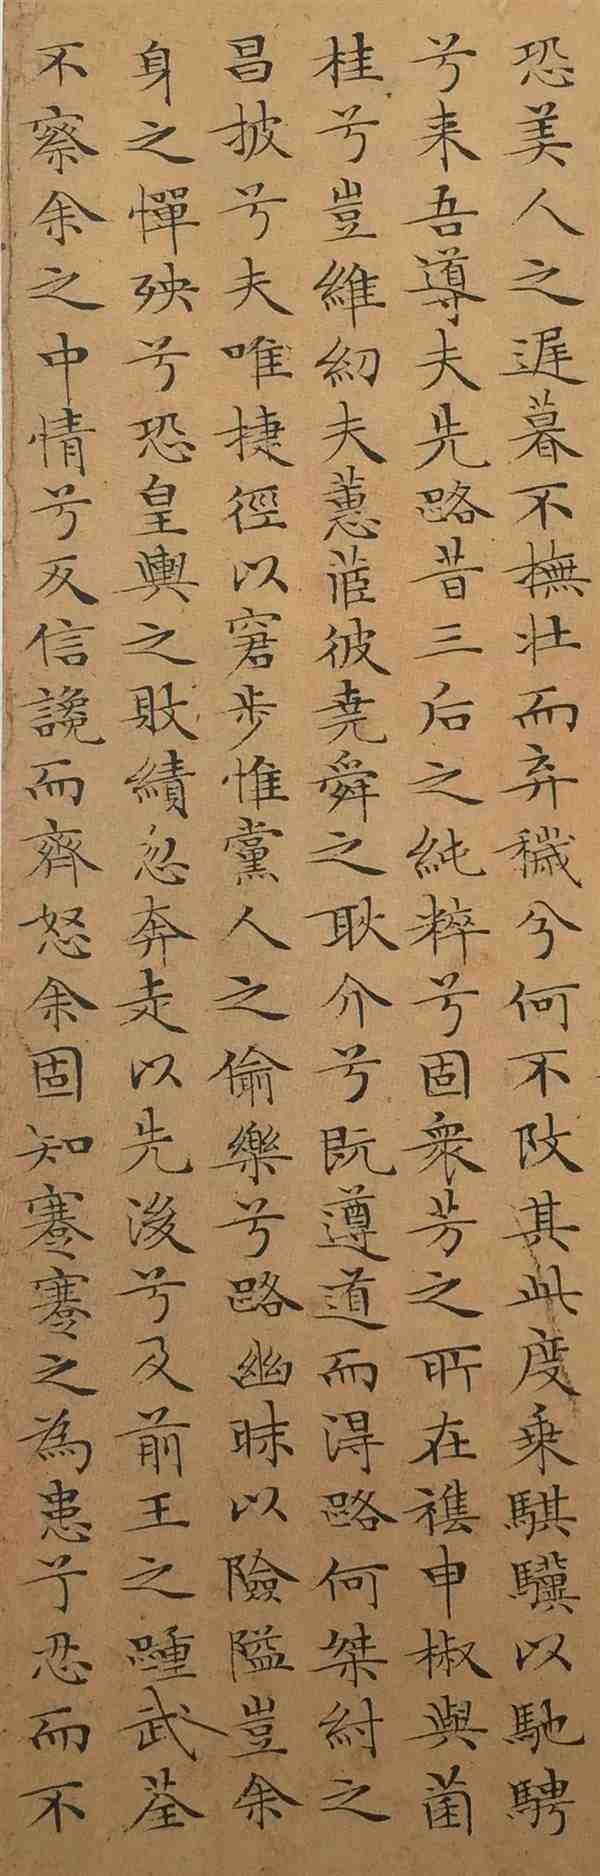 恐美人之遲暮不撫壯而弃穢兮何不改其此度乗騏驥以馳騁
兮来吾導夫先路昔三后之純粹兮固衆芳之所在雜申椒與菌
桂兮豈維紉夫蕙茝彼堯舜之耿介兮既遵道而得路何桀紂之
昌披兮夫唯捷徑以窘步惟黨人之偷樂兮路幽昧以險隘豈余
身之憚殃兮恐皇輿之敗績忽奔走以先後兮及前王之踵武荃
不察余之中情兮反信讒而齊怒余固知蹇蹇之為患兮忍而不